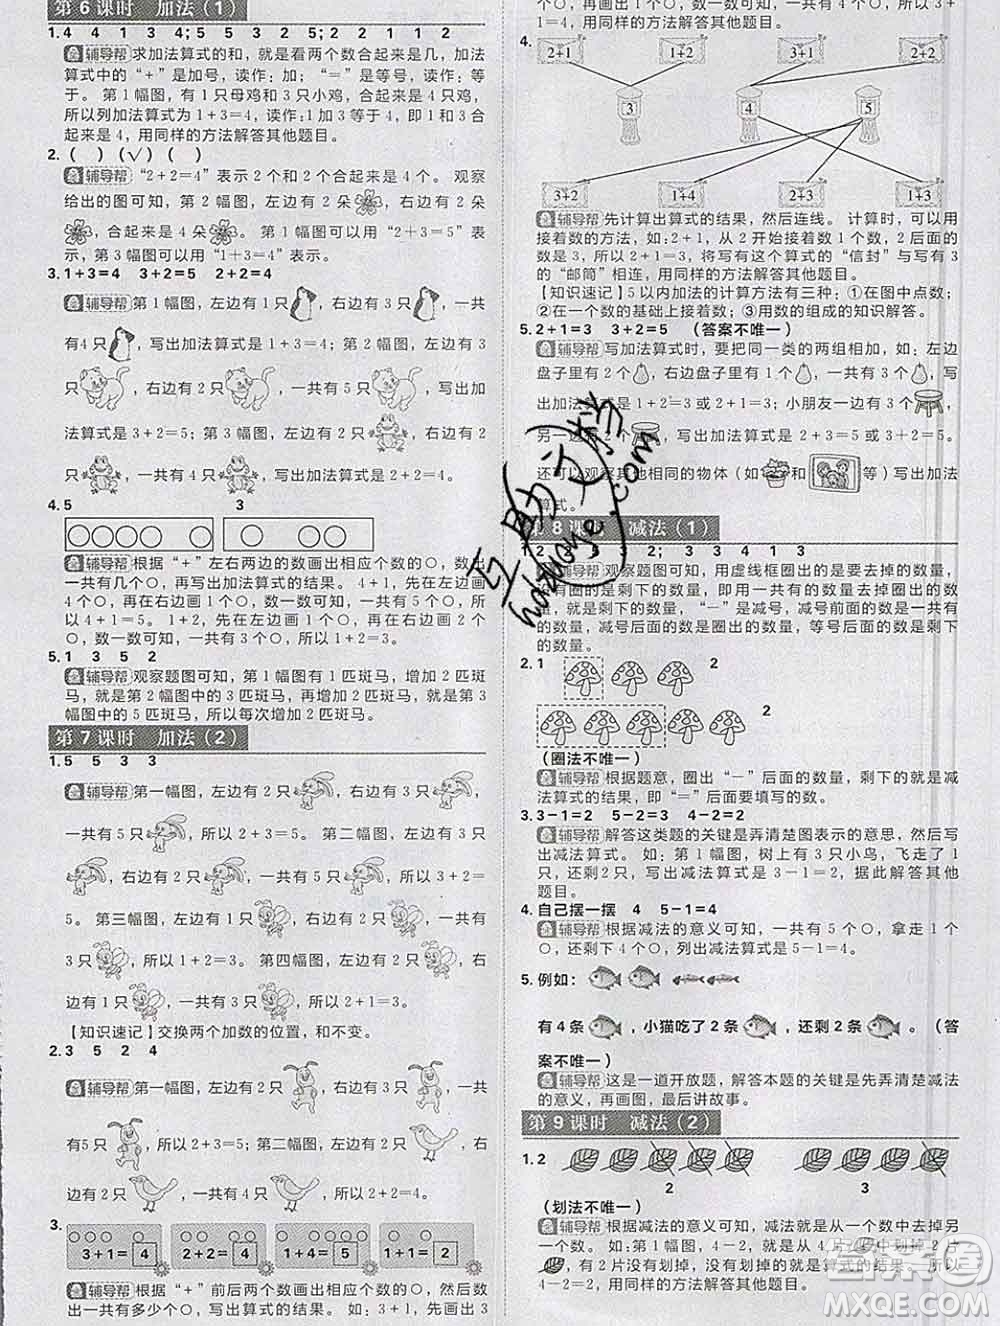 第 6 课时 加法（1）
1.4 4 1 3 4；5 5 3 2 5；2 2 1 1 2
辅导帮 求加法算式的和，就是看两个数合起来是几，加法
算式中的“+”是加号，读作：加；“=”是等号，读作：等
于。第 1 幅图，有 1 只母鸡和 3 只小鸡，合起来是 4 只鸡，
所以列加法算式为 1+3=4，读作：1 加 3 等于 4，即 1 和 3 合
起来是 4，用同样的方法解答其他题目。
2.（ ）（√）（ ）
辅导帮 “2+2=4”表示 2 个和 2 个合起来是 4 个。观察
给出的图可知，第 2 幅图，左边有 2 朵，右边有 2
朵，合起来是 4 朵。第 1 幅图可以用“2+3=5”表
示，第 3 幅图可以用“1+3=4”表示。
3.1+3=4 3+2=5 2+2=4
辅导帮 第 1 幅图，左边有 1 只，右边有 3 只，一共
有4 只，写出加法算式是 1+3=4；第 2 幅图，左边有 3
只，右边有 2 只，一共有 5 只，写出加
法算式是 3+2=5；第 3 幅图，左边有 2 只，右边有 2
只，一共有 4 只，写出加法算式是 2+2=4。
4.5 3
辅导帮 根据“+”左右两边的数画出相应个数的○，数出一
共有几个○，再写出加法算式的结果。4+1，先在左边画
4 个○，再在右边画 1 个○，数一数，一共有 5 个○，所
以4+1=5。1+2，先在左边画 1 个○，再在右边画 2 个
○，数一数，一共有 3 个○，所以1+2=3。
5.1 3 5 2
辅导帮 观察题图可知，第 1 幅图有 1 匹斑马，增加 2 匹斑
马，就是第 2 幅图中的 3 匹斑马，再增加 2 匹斑马，就是第 3
幅图中的 5 匹斑马，所以每次增加 2 匹斑马。
第 7 课时 加法（2）
1.5 5 3 3
辅导帮 第一幅图，左边有 2 只，右边有 3 只，
一共有 5 只，所以 2+3=5。第二幅图，左边有 3 只
，右边有 2 只，一共有 5 只，所以 3+2=
5。第三幅图，左边有 1 只，右边有 2 只，一共有
3 只，所以 1+2=3。第四幅图，左边有 2 只，右
边有 1 只，一共有 3 只，所以 2+1=3。
【知识速记】交换两个加数的位置，和不变。
2.3 5 2 4
辅导帮 第一幅图，左边有 2 只，右边有 3 只，一共
有5 只，所以 2+3=5。第二幅图，左边有 2 只，右
边有 2 只，一共有 4 只，所以 2+2=4。
3.
3+1=4 2+2=4 1+4=5 1+1=2
辅导帮 根据“+”前后两个数画出相应个数的○，然后数出
一共有多少个○，写出算式的结果。如：3+1，先画出 3
有 1 个○，再画出 1 个○，数一数，一共有 4 个○，所以 3+1=
4，用同样的方法解答其他题目。
4.
2+1 1+2 3+1 2+2
3 4 5
3+2 1+4 2+3 1+3
辅导帮 先计算出算式的结果，然后连线。计算时，可以用
接着数的方法，如：2+1，从 2 开始接着数 1 个数，2 后面的
数是 3，所以 2+1=3，将写有这个算式的“信封”与写有 3
的“邮筒”相连，用同样的方法解答其他题目。
【知识速记】5 以内加法的计算方法有三种：①在图中点数；
②在一个数的基础上接着数；③用数的组成的知识解答。
5.2+1=3 3+2=5 （答案不唯一）
辅导帮 写加法算式时，要把同一类的两组相加，如：左边
盘子里有 2 个，右边盘子里有 1 个，一共有 3 个，写
出加法算式是 1+2=3 或 2+1=3；小朋友一边有 2 个，
另一边有 3 个，写出加法算式是 2+3=5 或 3+2=5。
还可以观察其他相同的物体（如和等）写出加法
算式。
第 8 课时 减法（1）
辅导帮 观察题图可知，用虚线框圈出的是要去掉的数量，
没有圈的是剩下的数量，即用一共有的数量去掉圈出的数
量，就是剩下的数量，“−”是减号，减号前面的数是一共有
的数量，减号后面的数是圈出的数量，等号后面的数是剩下
的数量。
2.1 2
2
（圈法不唯一）
辅导帮 根据题意，圈出“−”后面的数量，剩下的就是减
法算式的结果，即“=”后面要填写的数。
3.3−1=2 5−2=3 4−2=2
辅导帮 解答这类题的关键是弄清楚图表示的意思，然后写
出减法算式。如：第 1 幅图，树上有 3 只小鸟，飞走了 1
只，还剩 2 只，写出减法算式是 3−1=2，据此解答其他
题目。
4.自己摆一摆 4 5−1=4
辅导帮 根据减法的意义可知，一共有 5 个○，拿走 1 个
○，还剩下 4 个○，列出减法算式是 5−1=4。
5.例如：
有 4 条，小猫吃了 2 条，还剩 2 条。（答
案不唯一）
辅导帮 这是一道开放题，解答本题的关键是先弄清楚减法
的意义，再画图，最后讲故事。
第 9 课时 减法（2）
1.2
2 3
（划法不唯一）
辅导帮 根据减法的意义可知，减法就是从一个数中去掉另
一个数。如：第 1 幅图，减法算式是 4−2，从 4 片中划掉 2 片
，有 2 片没有划掉，没有划掉的数量就是结果，即 4−2=2。
用同样的方法解答其他题目。
互助文档
hdzuoye.com
答案圈
MXQE.COM